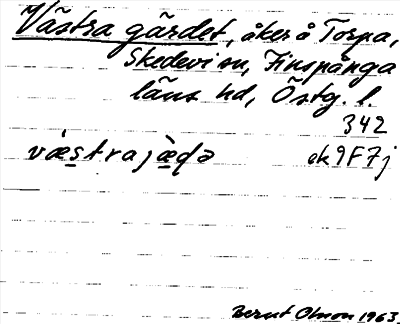 Västra gärdet, åker å Torpa,
Skedevi sn, Finspånga
läns hd, Östg. l.
342
væ̀strajæ̀ɖə ek9F7j
Bernt Olsson 1963.